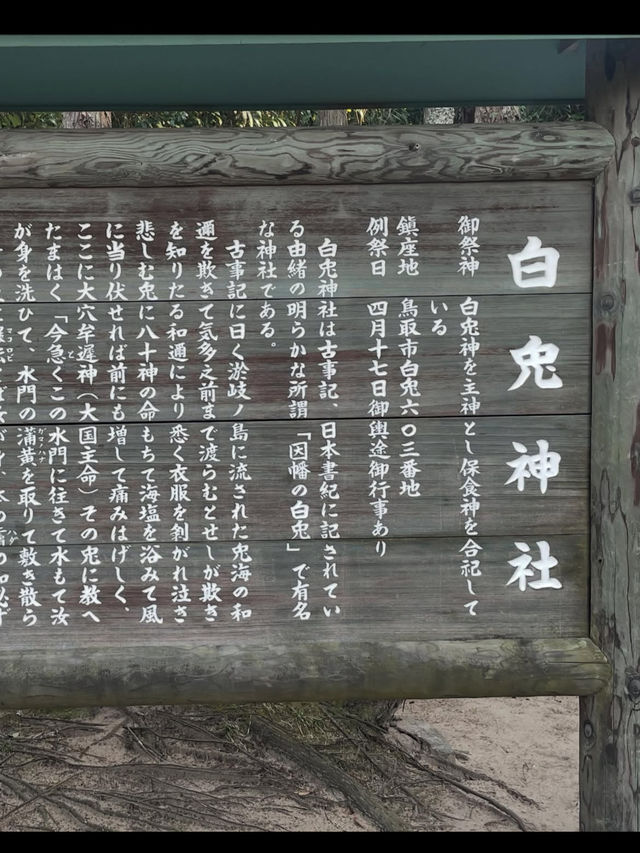 白兎神社
御祭神 白兎神を主神とし保食神を合祀して
いる
鎮座地 鳥取市白兎六〇三番地
例祭日 四月十七日御輿途御行事あり
白兎神社は古事記、日本書紀に記されてい
る由緒の明らかな所謂「因幡の白兎」で有名
な神社である。
古事記に曰く淤岐ノ島に流された兎海の和
邇を欺きて気多之前まで渡らむとせしが欺き
を知りたる和邇により悉く衣服を剥がれ泣き
悲しむ兎に八十神の命もちて海塩を浴みて風
に当り伏せれば前にも増して痛みはげしく、
ここに大穴牟遅神(大国主命)その兎に教へ
たまはく「今急くこの水門に往きて水もて汝
が身を洗ひて、水門の蒲黄を取りて敷き散ら